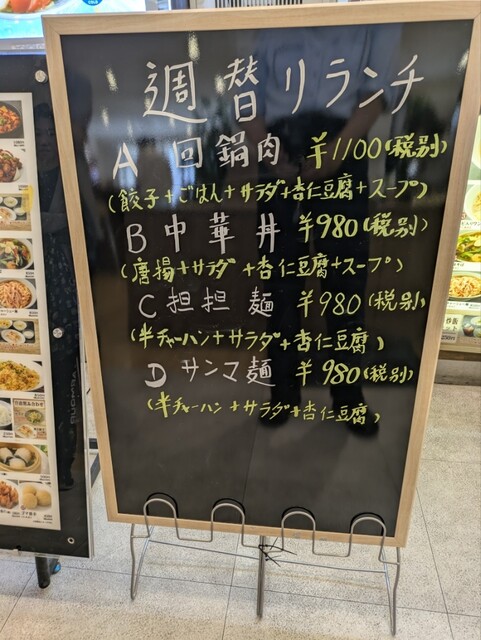 週替リランチ
A 回鍋肉 ¥1100(税別)
(餃子+ごはん+サラダ+杏仁豆腐+スープ)
B 中華丼 ¥980(税別)
(唐揚+サラダ+杏仁豆腐+スープ)
C 担担麺 ¥980(税別)
(半チャーハン+サラダ+杏仁豆腐)
D サンマ麺 ¥980(税別)
(半チャーハン+サラダ+杏仁豆腐)